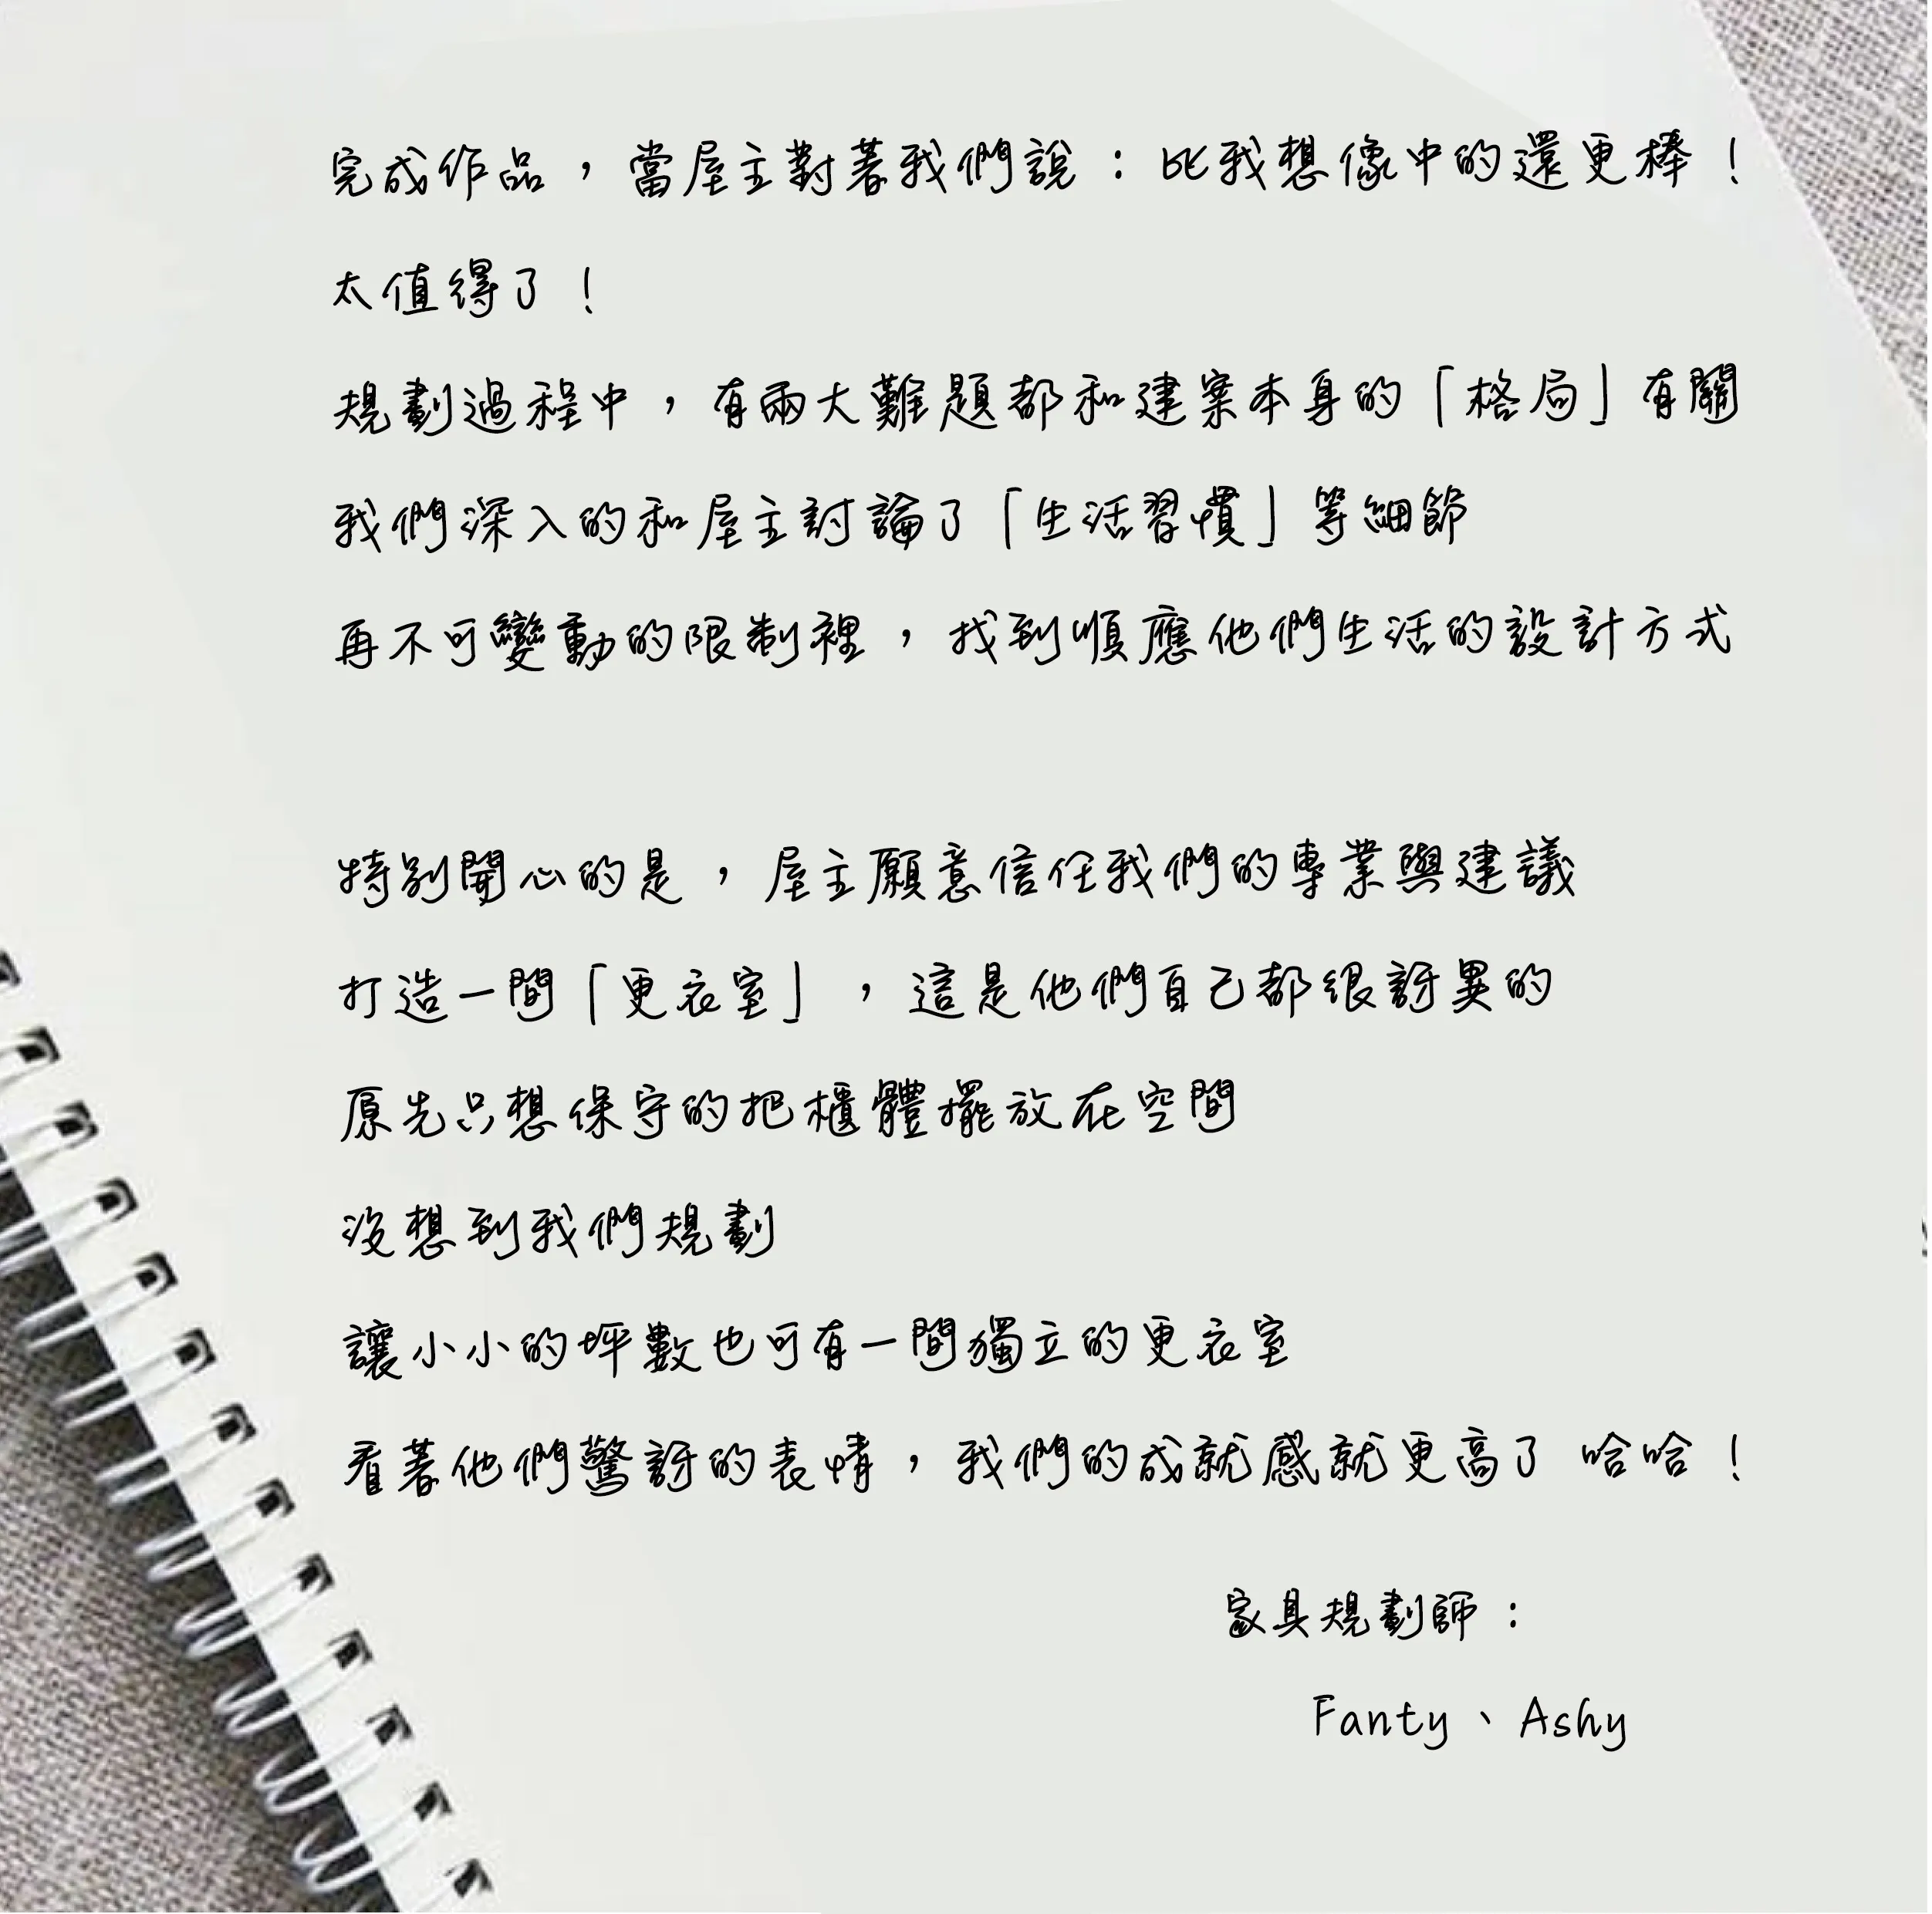 完成作品，當屋主對著我們說：比我想像中的還更棒！
太值得了！
規劃過程中，有兩大難題都和建案本身的「格局」有關
我們深入的和屋主討論了「生活習慣」等細節
再不可變動的限制裡，找到順應他們生活的設計方式
特別開心的是，屋主願意信任我們的專業與建議
打造一間「更衣室」，這是他們自己都很訝異的
原先只想保守的把櫃體擺放在空間
沒想到我們規劃
讓小小的坪數也可有一間獨立的更衣室
看著他們驚訝的表情，我們的成就感就更高了 哈哈！
家具規劃師：
Fanty、Ashy